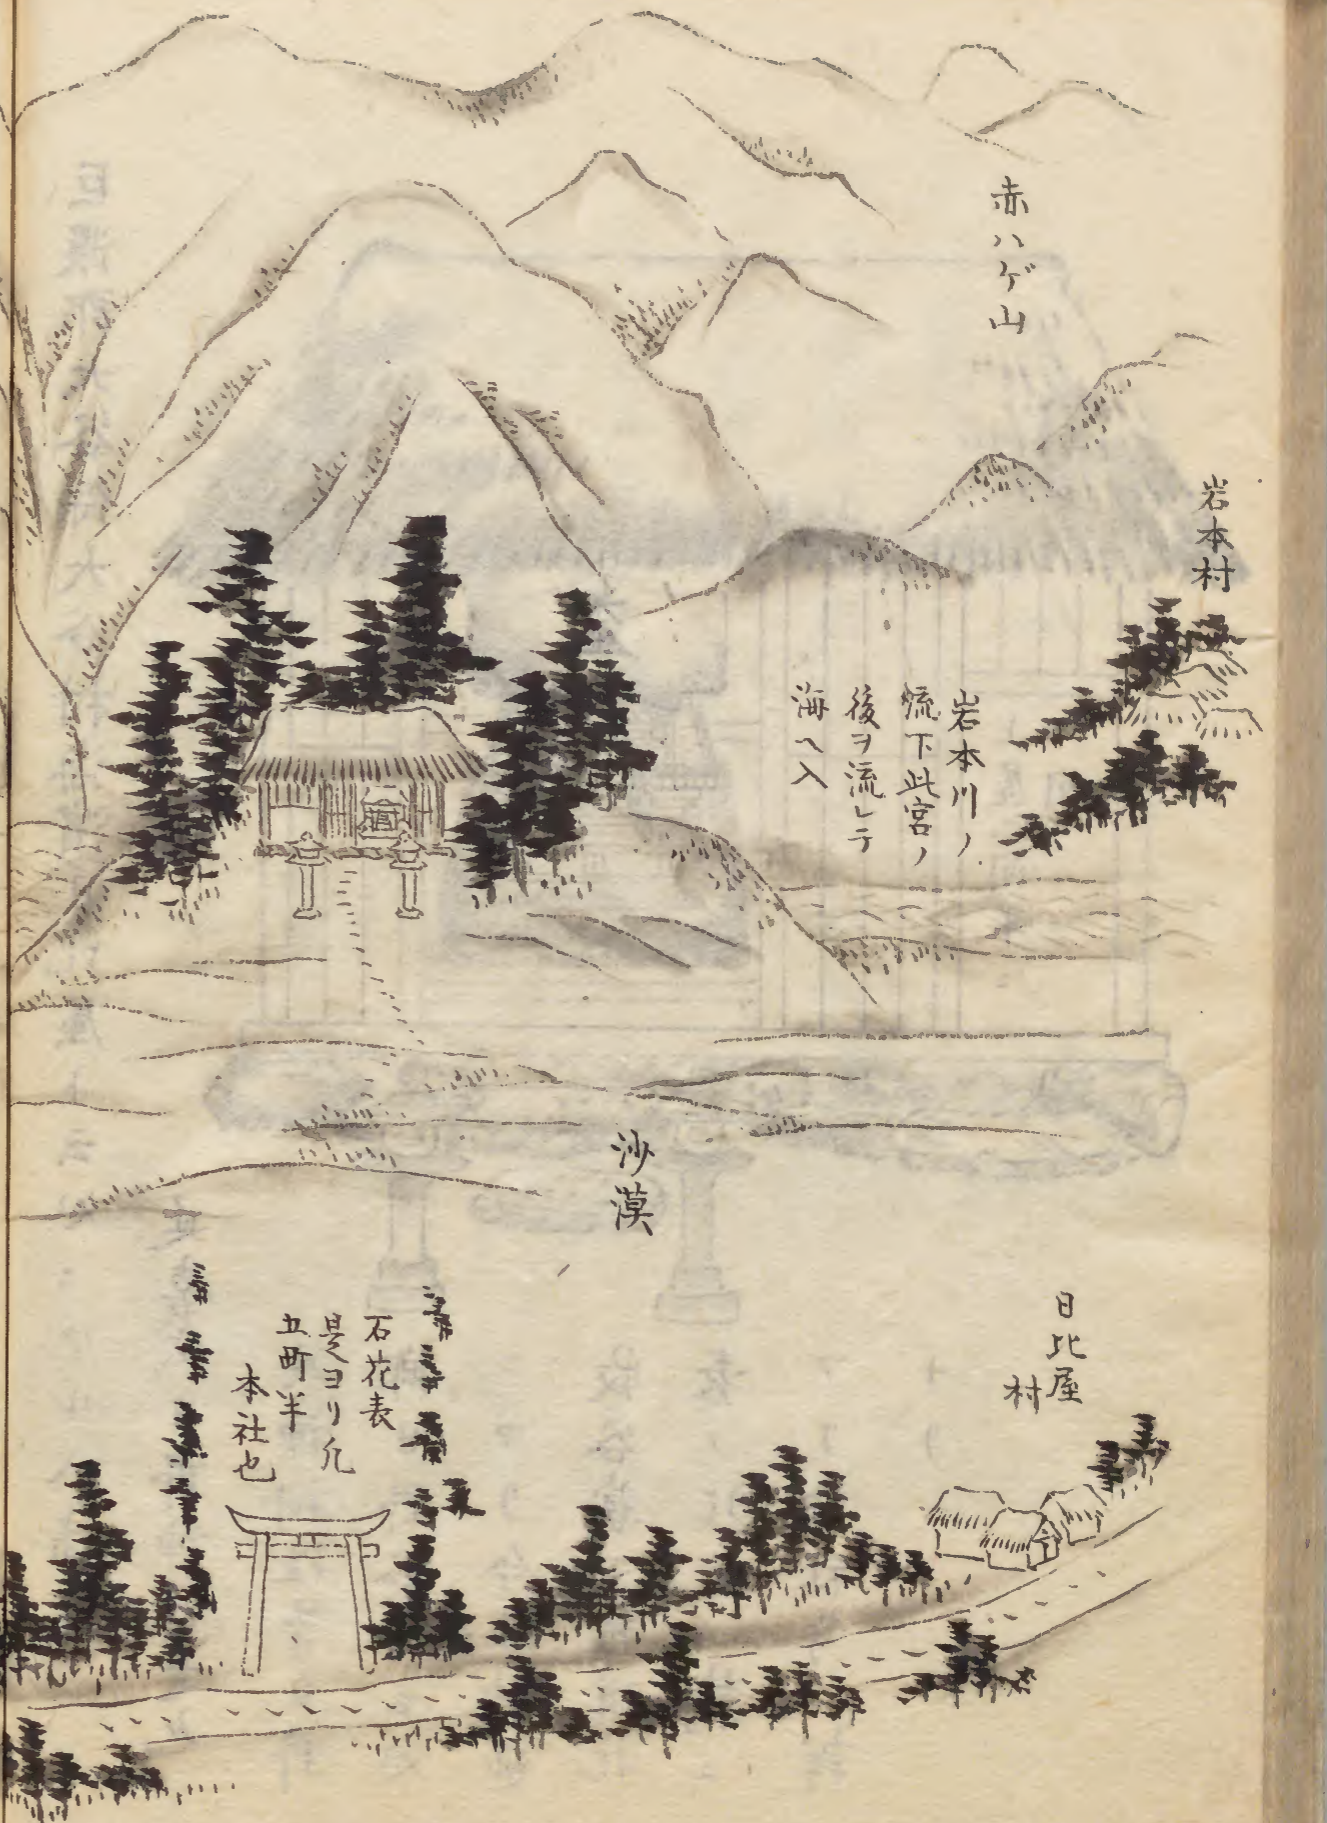 赤ハゲ山
岩本村
岩本川ノ
流下此宮ノ
後ヲ流レテ
海ヘ入
沙漠
日比屋
村
石花表
是ヨリ凡
五町半
本社也